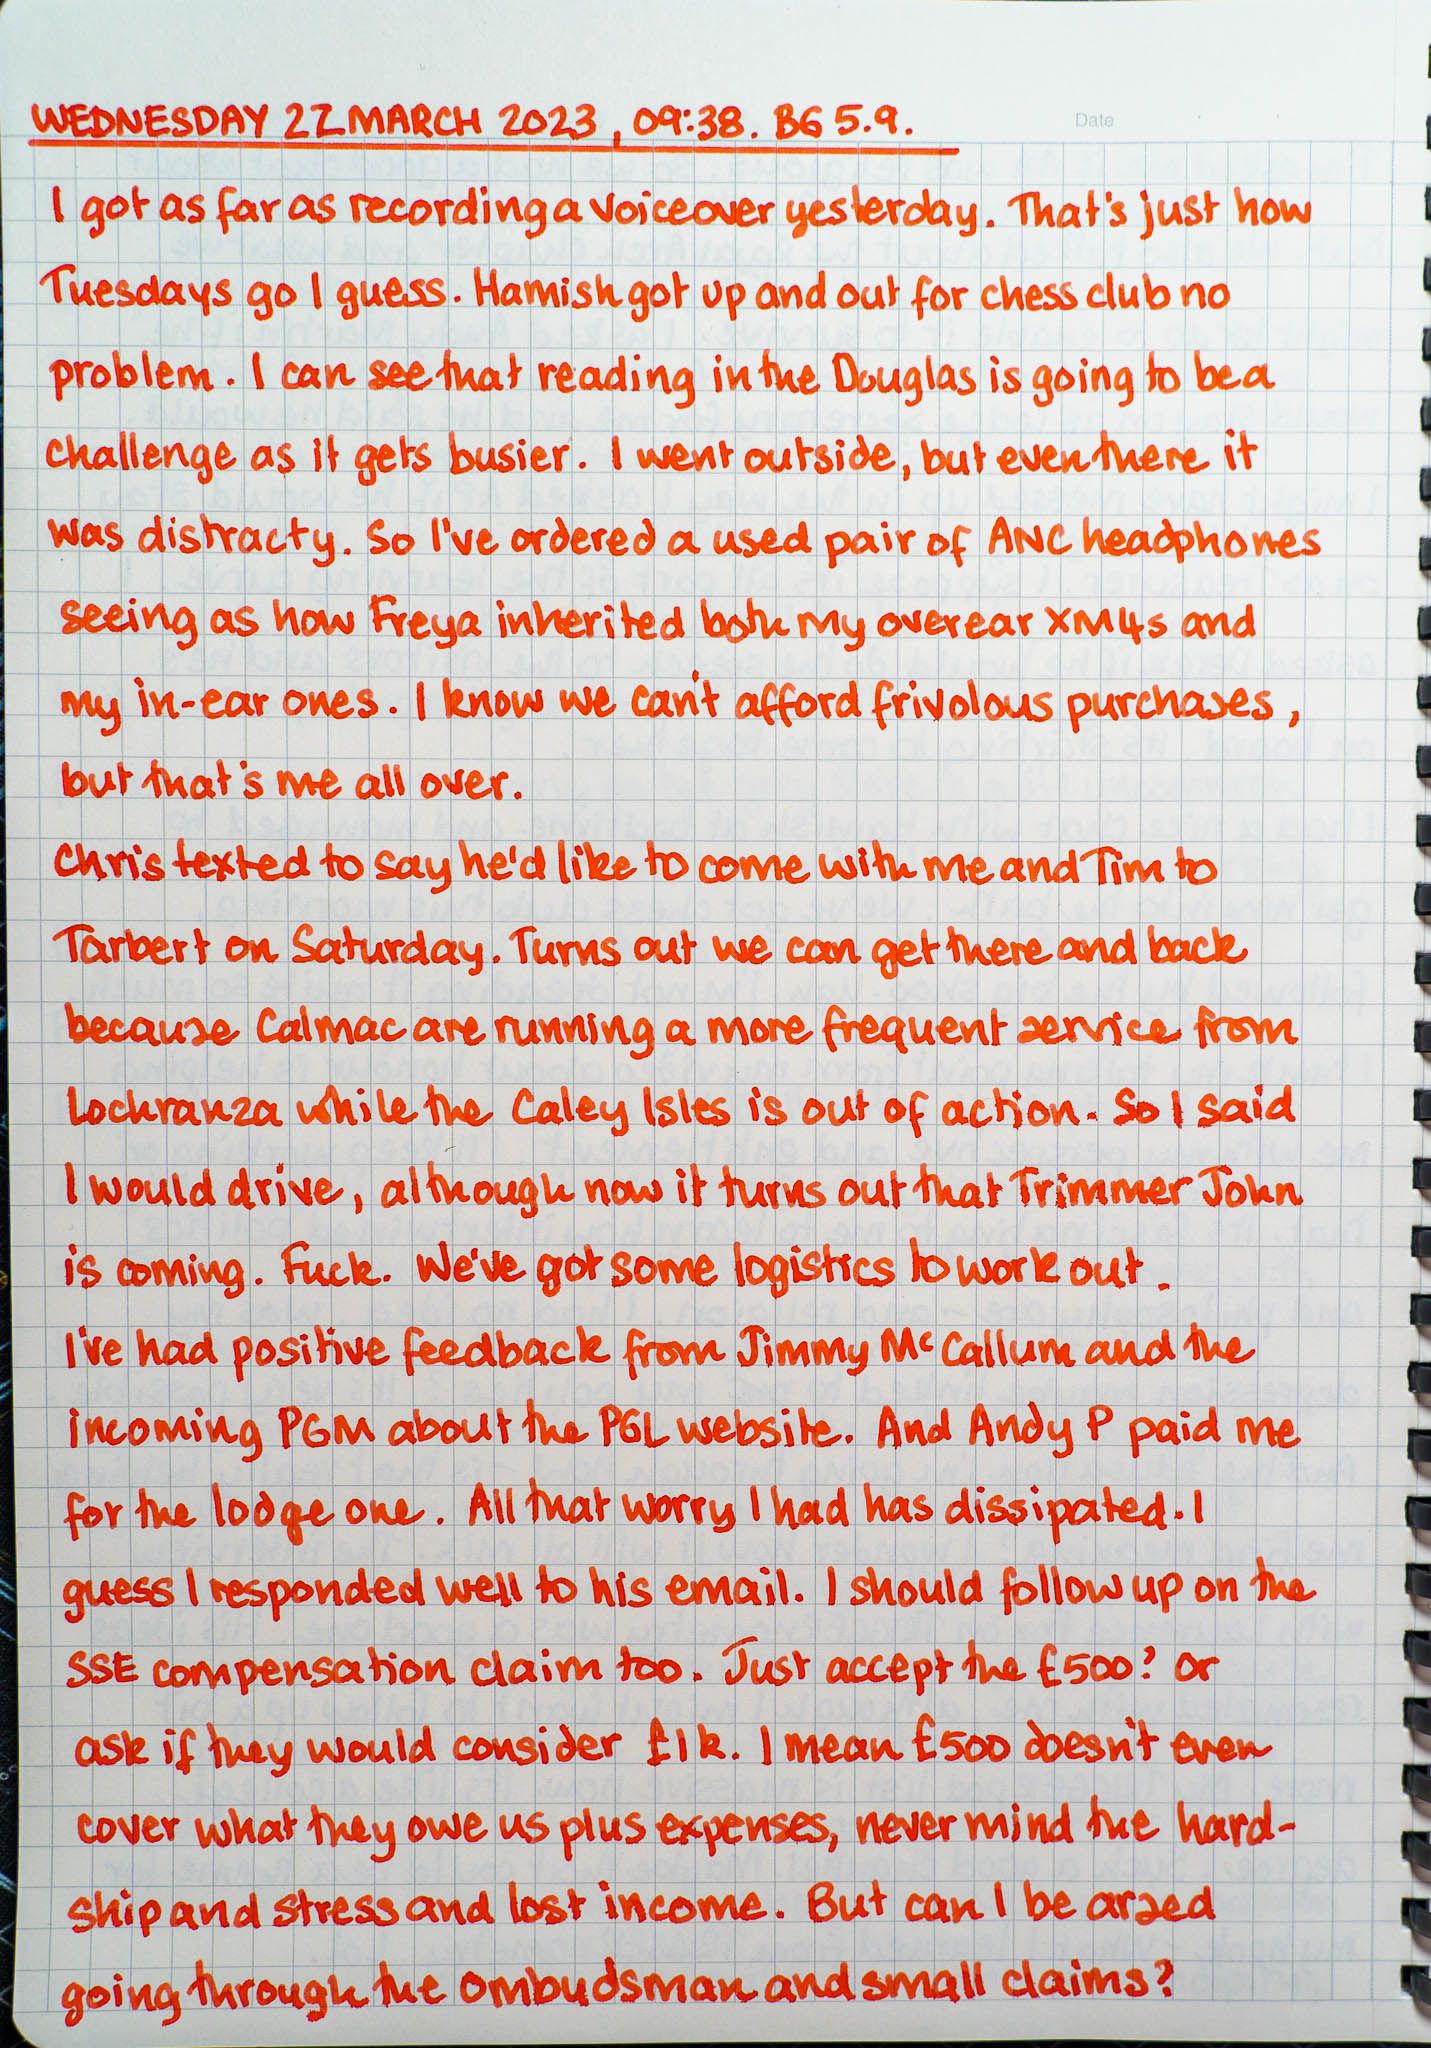 WEDNESDAY 22 MARCH 2023, 09:38. BG 5.9.
Date
I got as far as recording a voiceover yesterday. That's just how
Tuesdays go I guess. Hamish got up and out for chess club no
problem. I can see that reading in the Douglas is going to be a
challenge as it gets busier. I went outside, but even there it
was distracty. So I've ordered a used pair of ANC headphones
seeing as how Freya inherited both my overear XM4s and
my in-ear ones. I know we can't afford frivolous purchases,
but that's me all over.
Chris texted to say he'd like to come with me and Tim to
Tarbert on Saturday. Turns out we can get there and back
because Calmac are running a more frequent service from
Lochranza while the Caley Isles is out of action. So I said
I would drive, although now it turns out that Trimmer John
is coming. Fuck. We've got some logistics to work out.
I've had positive feedback from Jimmy McCallum and the
incoming PGM about the PGL website. And Andy P paid me
for the lodge one. All that worry I had has dissipated. I
guess I responded well to his email. I should follow up on the
SSE compensation claim too. Just accept the £500? Or
ask if they would consider £1k. I mean £500 doesn't even
cover what they owe us plus expenses, never mind the hard-
ship and stress and lost income. But can I be arsed
going through the ombudsman and small claims?